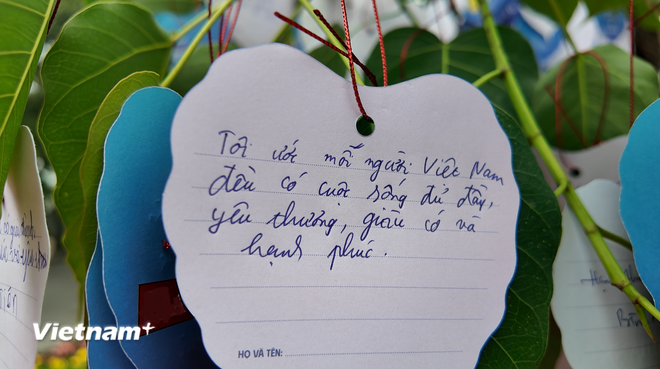 Tôi ước mỗi người Việt Nam
đều có cuộc sống đủ đầy,
yêu thương, giàu có và
hạnh phúc.
HỌ VÀ TÊN:
Vietnam+